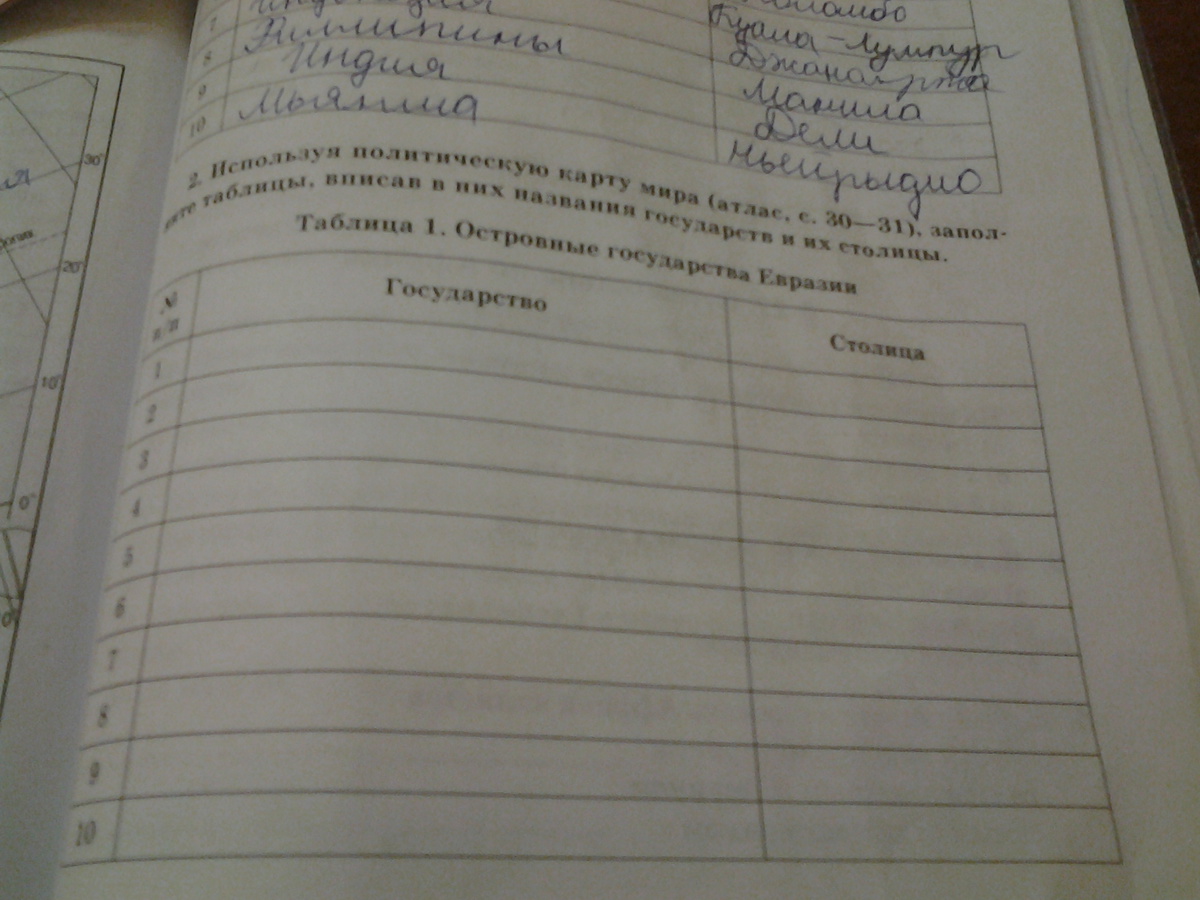 7 Индонезия Коломбо
8 Филлипины Куала-Лумпур
9 Индия Джакарта
10 Мьянма Манила
Дели
Ньепьидио
2. Используя политическую карту мира (атлас, с. 30—31), запол-
ните таблицы, вписав в них названия государств и их столицы.
Таблица 1. Островные государства Евразии
№ п/п Государство Столица
1
2
3
4
5
6
7
8
9
10
30°
20°
10°
0°